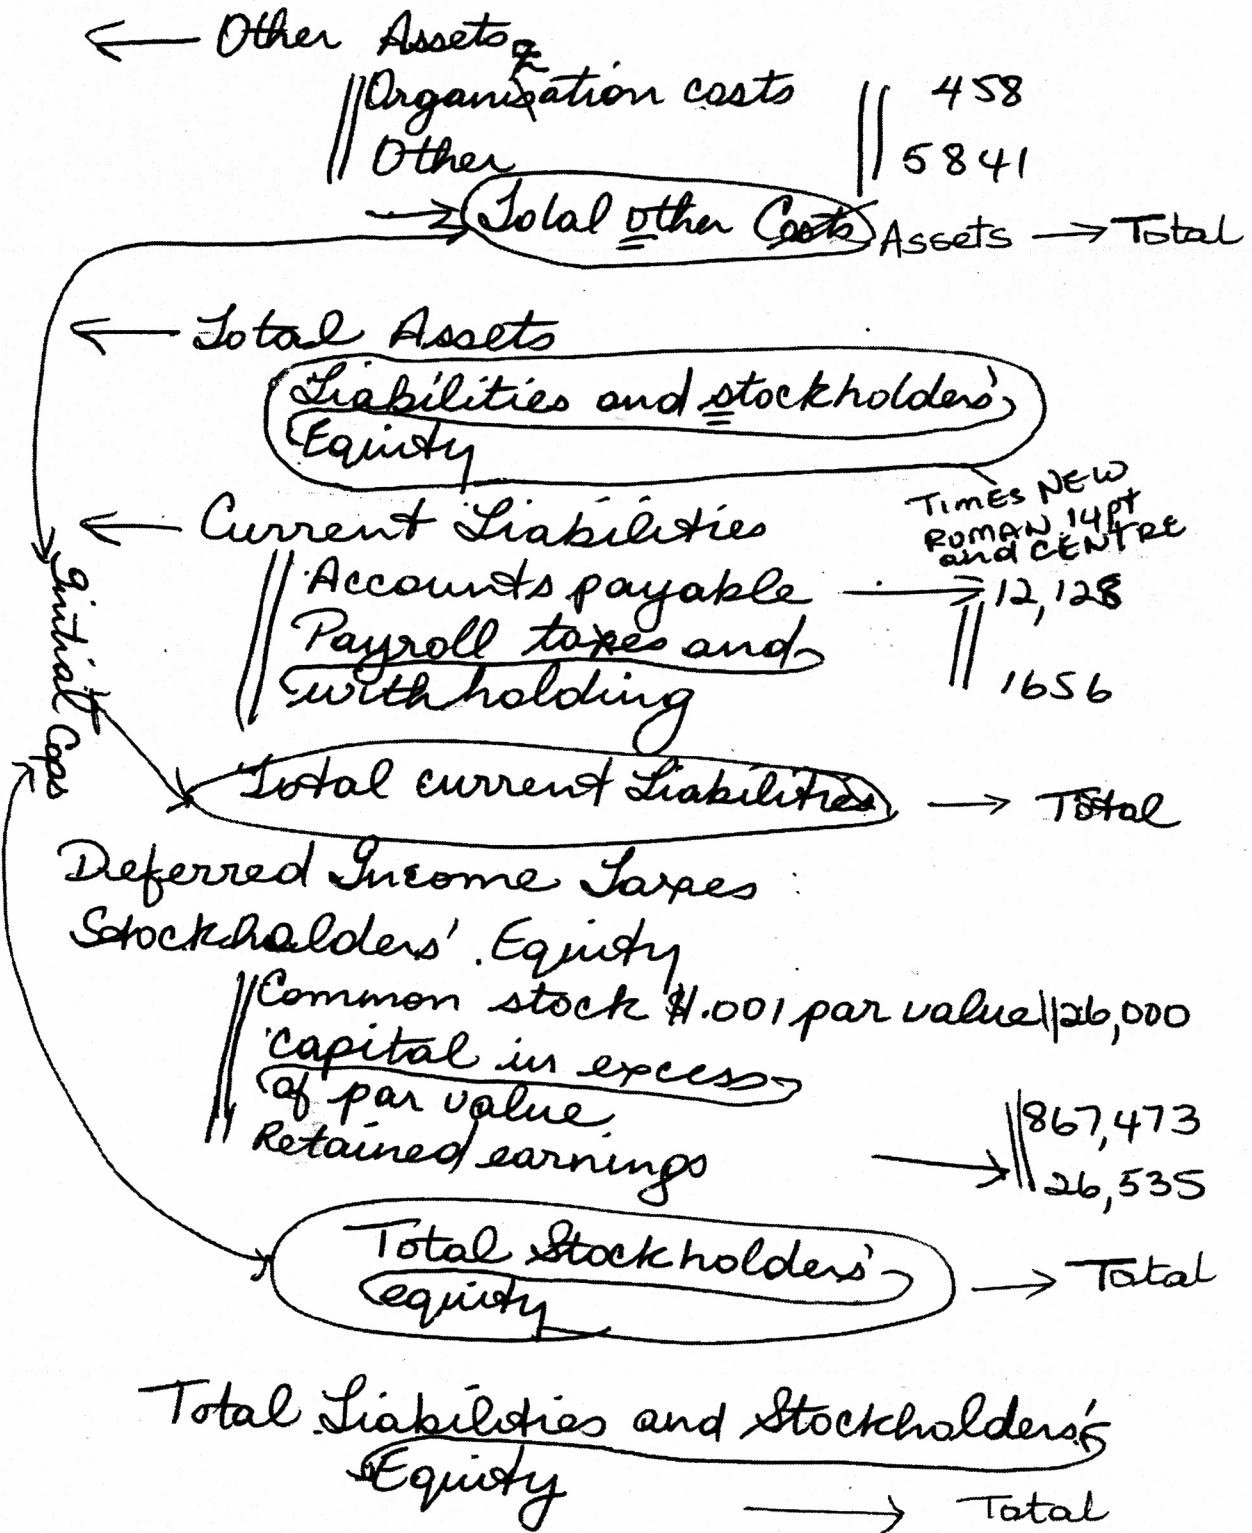 Other Assets
Organization costs 458
Other 5841
Total other Costs Assets → Total
Total Assets
Liabilities and stockholders'
Equity
TIMES NEW
ROMAN 14pt
and CENTRE
Current Liabilities
Accounts payable → 12,128
Payroll taxes and
withholding 1656
Initial Caps
Total current Liabilities → Total
Deferred Income Taxes
Stockholders' Equity
Common stock $.001 par value 26,000
capital in excess
of par value 867,473
Retained earnings → 26,535
Total Stockholders'
equity → Total
Total Liabilities and Stockholders'
Equity → Total